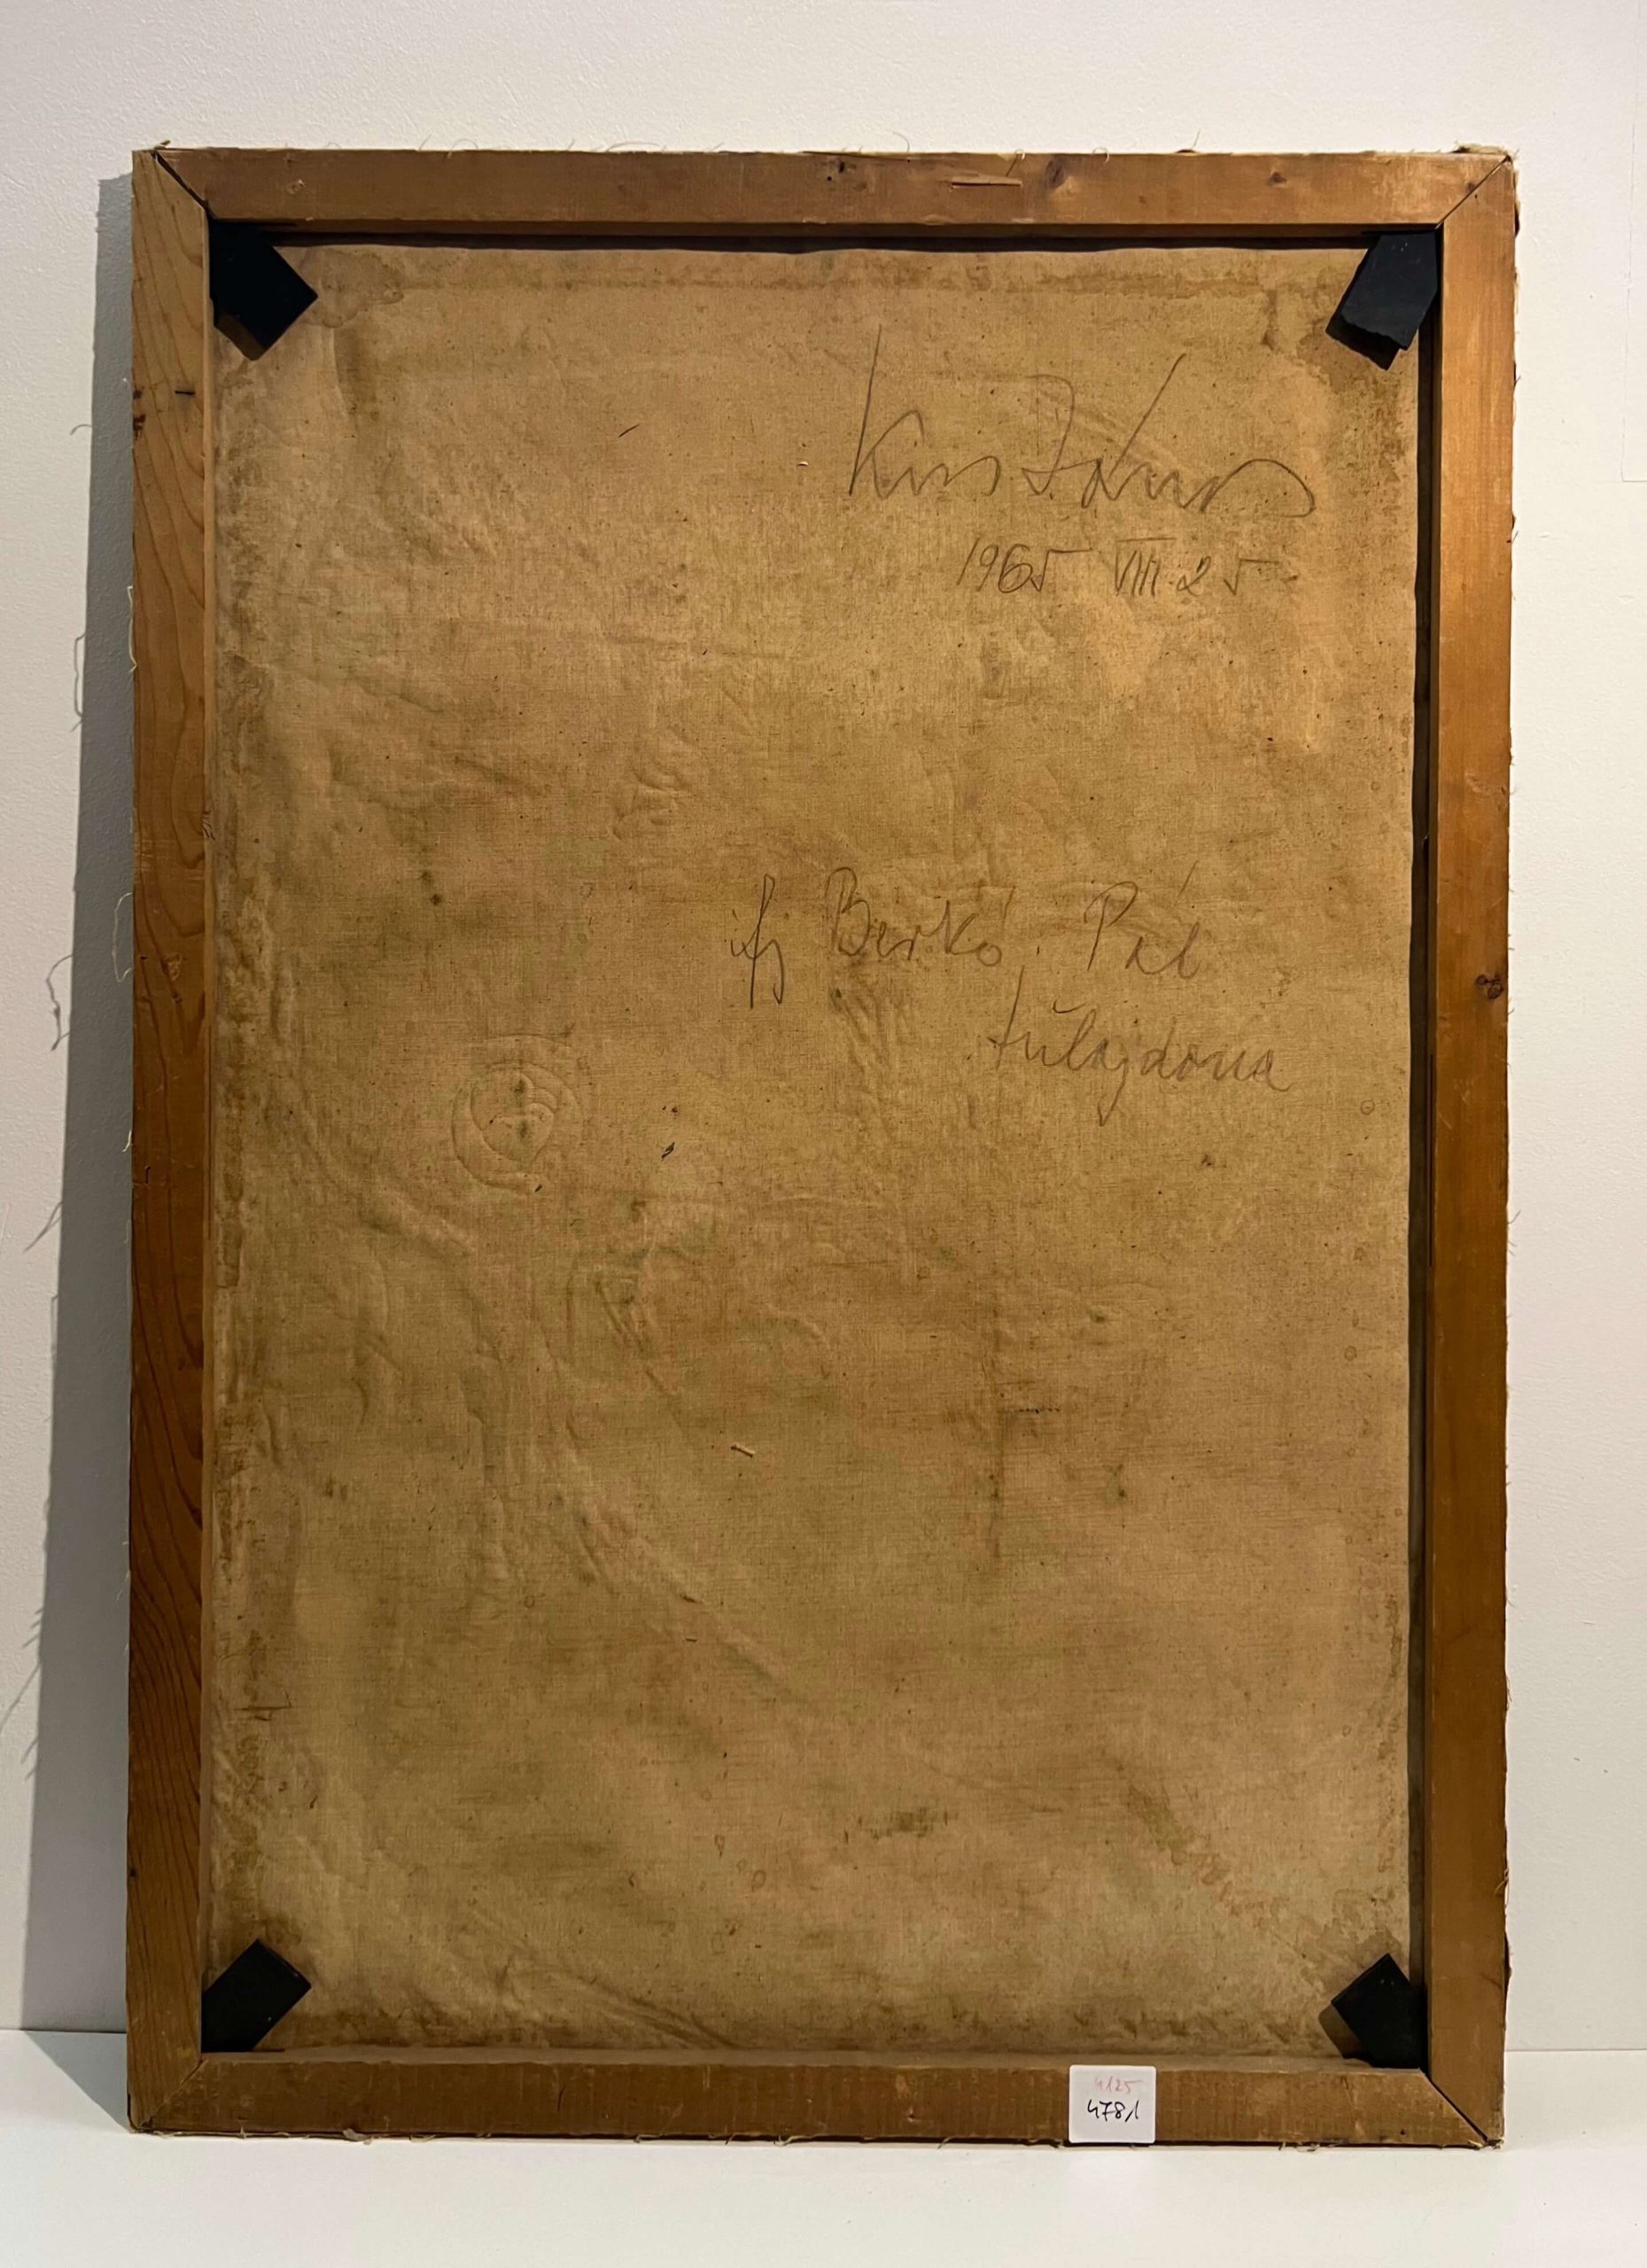 Kiss János
1965 VIII. 25
ifj Berkó Pál
tulajdona
4125
4781